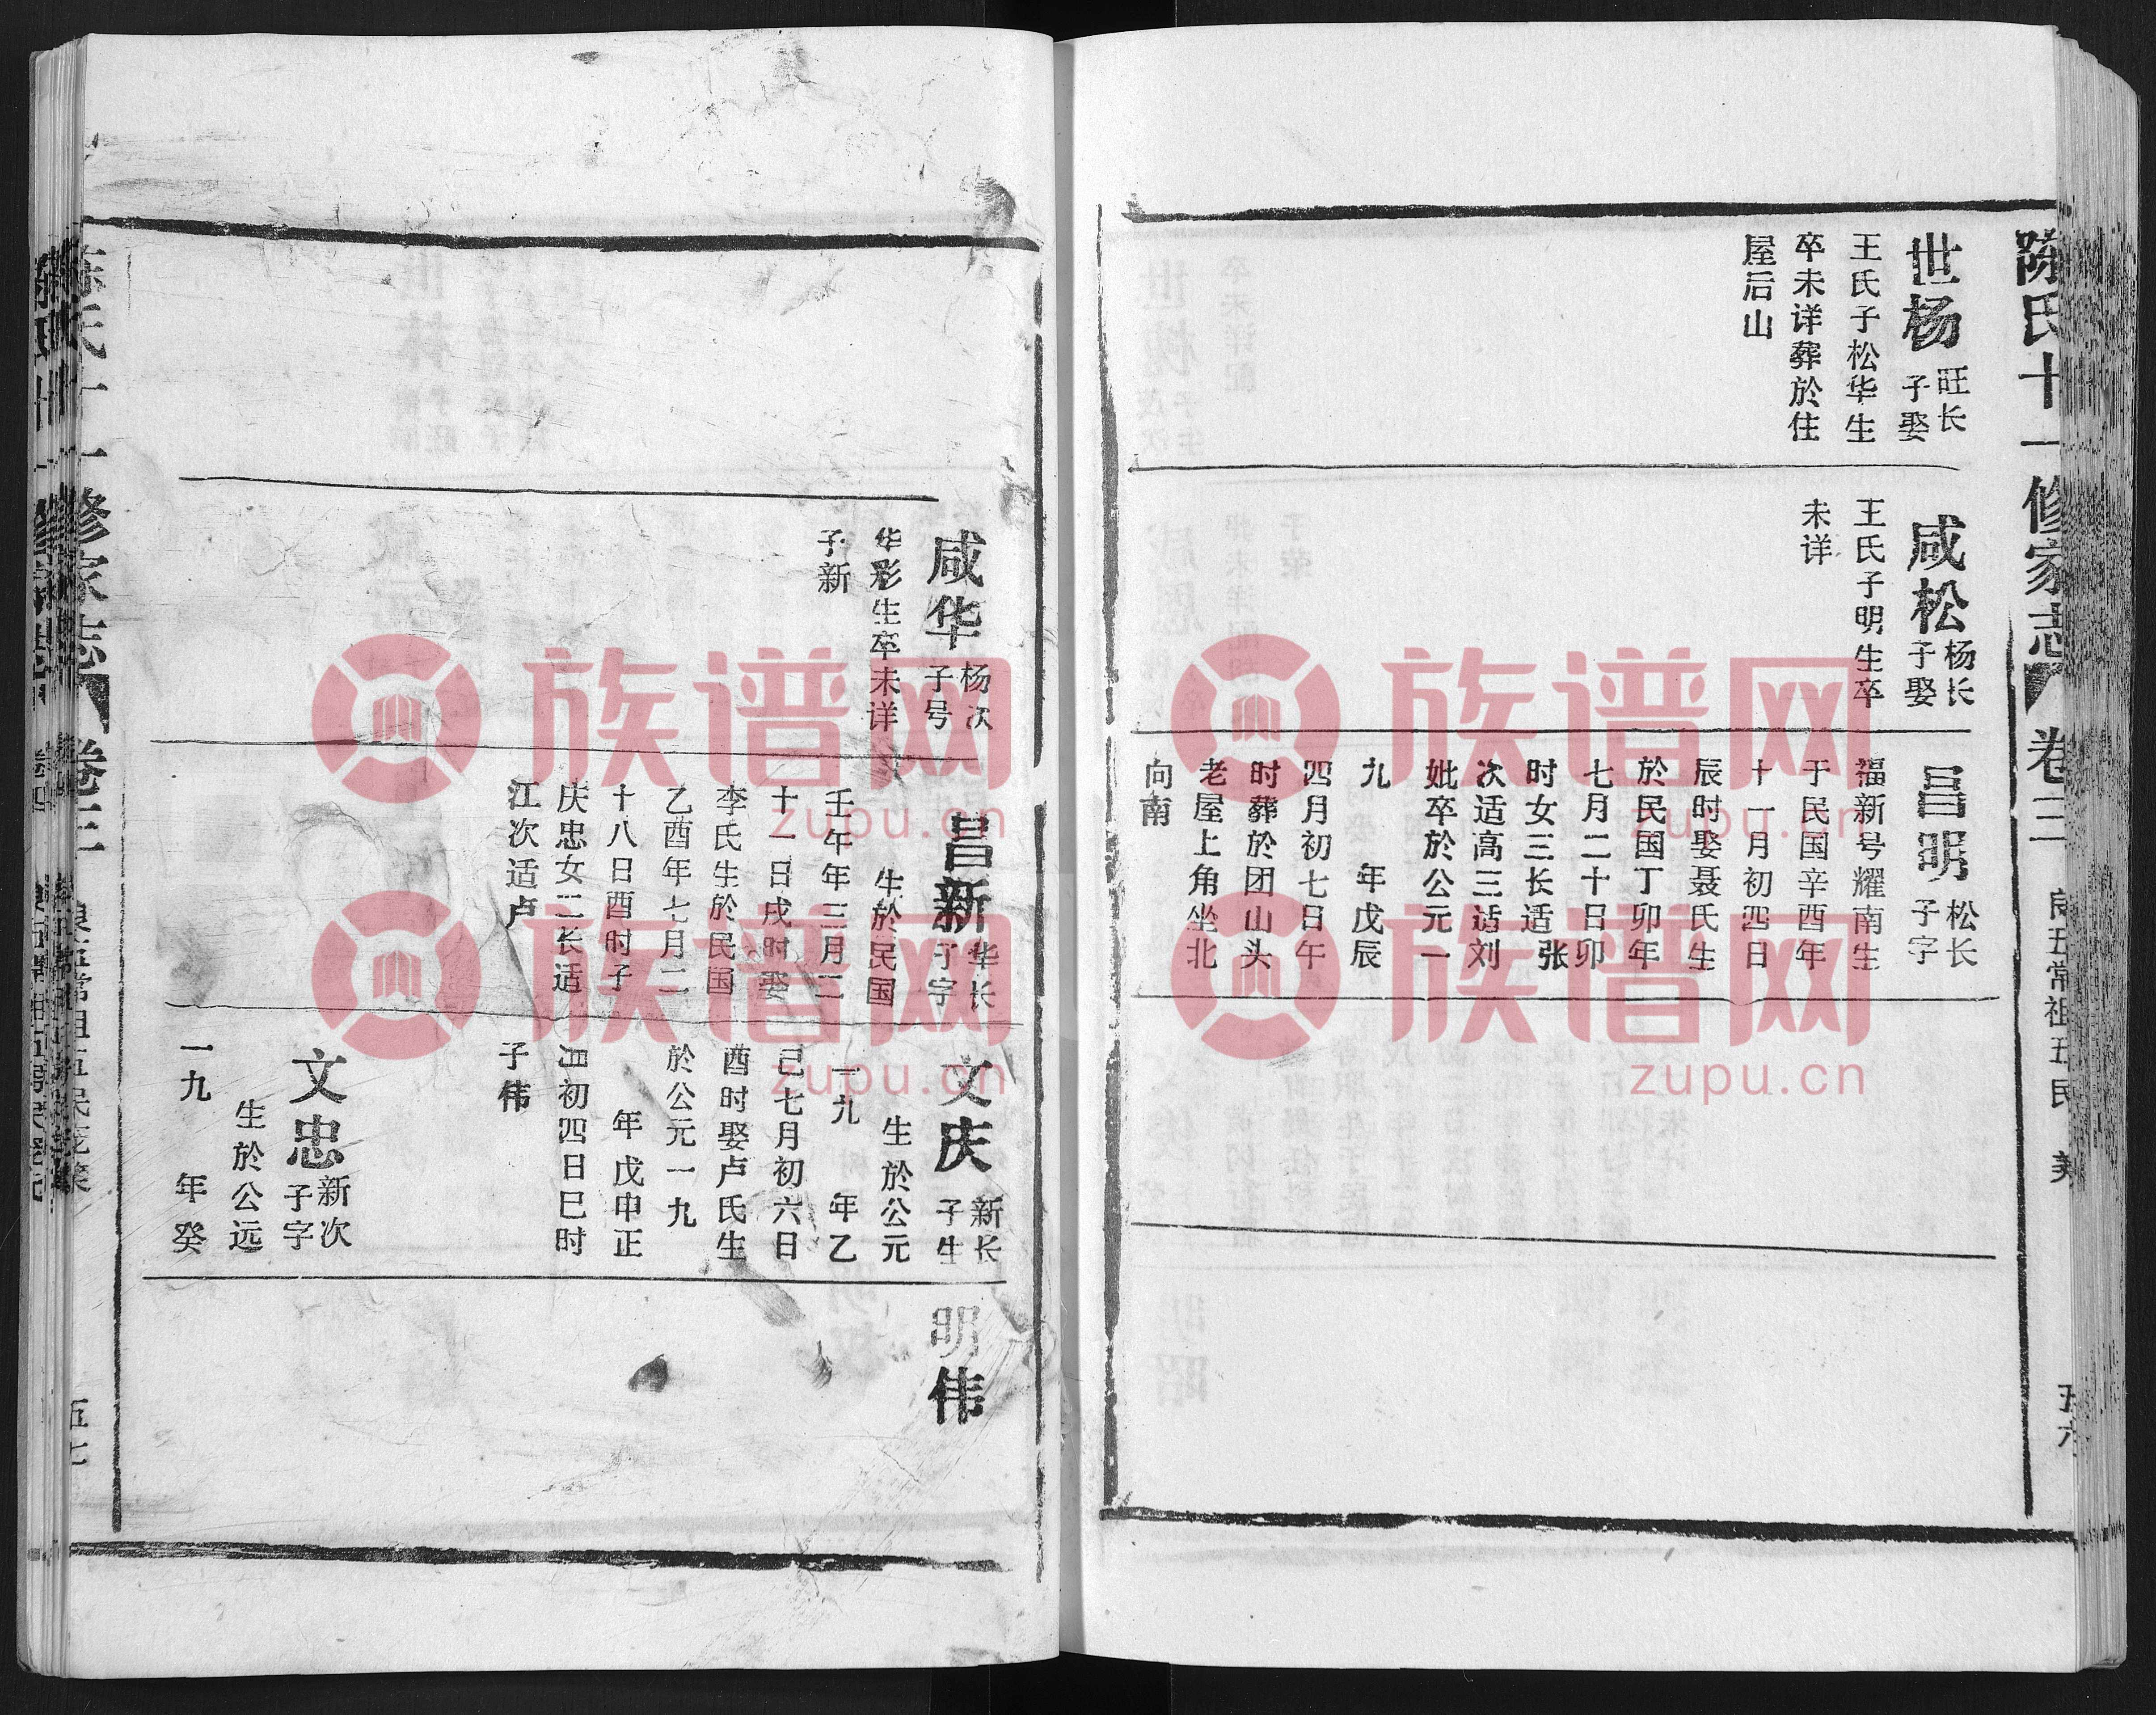 陈氏十一修家志
卷三
世杨
旺长
子娶
王氏子松华生
卒未详葬於住
屋后山
咸松
杨长
子娶
王氏子明生卒
未详
昌明
松长
子字
福新号耀南生
于民国辛酉年
十一月初四日
辰时娶聂氏生
於民国丁卯年
七月二十日卯
时女三长适张
次适高三适刘
妣卒於公元一
九 年戊辰
四月初七日午
时葬於团山头
老屋上角坐北
向南
五六
咸华
杨次
子号
华彩生卒未详
子新
昌新
华长
子字
生於民国
壬午年三月二
十一日戌时娶
李氏生於民国
乙酉年七月二
十八日酉时子
庆忠女二长适
江次适卢
文庆
新长
子生
生於公元
一九 年乙
己七月初六日
酉时娶卢氏生
於公元一九
年戊申正
初四日巳时
子伟
文忠
新次
子字
生於公远
一九 年癸
明伟
修家志
卷三
五七
族谱网
zupu.cn
族谱网
zupu.cn
族谱网
zupu.cn
族谱网
zupu.cn